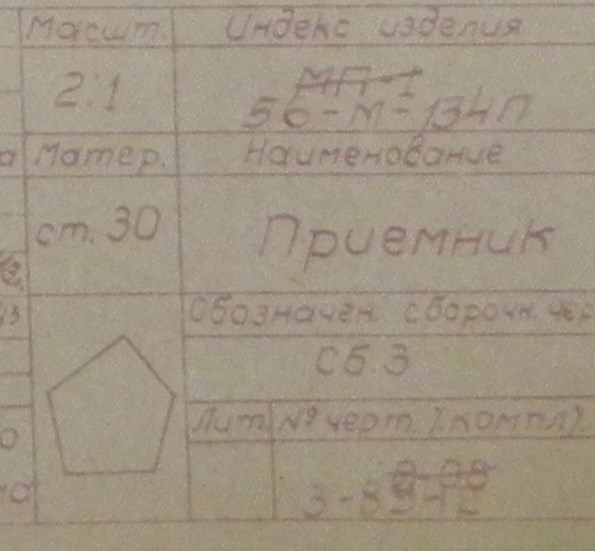 Масшт. Индекс изделия
2:1 МП-1
56-М-134П
Матер. Наименование
ст. 30 Приемник
Обозначен. сборочн. чер
Сб.3
Лит. № черт. (компл).